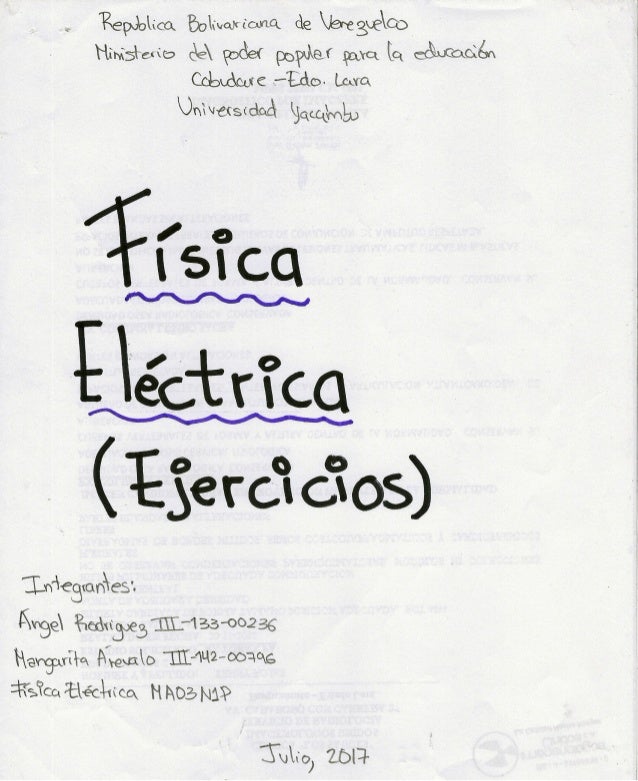 Republica Bolivariana de Venezuela
Ministerio del poder popular para la educación
Cabudare - Edo. Lara
Universidad Yacambu
Física
Eléctrica
(Ejercicios)
Integrantes:
Ángel Rodriguez III-133-00236
Margarita Arevalo III-142-00796
Física Eléctrica MA03N1P
Julio, 2017